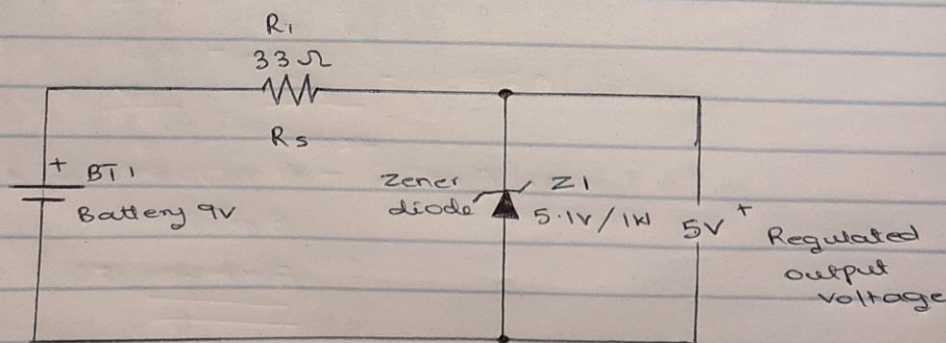 R1
33 Ω
Rs
+ BT1
Battery 9V
Zener
diode
Z1
5.1V/1W
5V +
Regulated
output
voltage